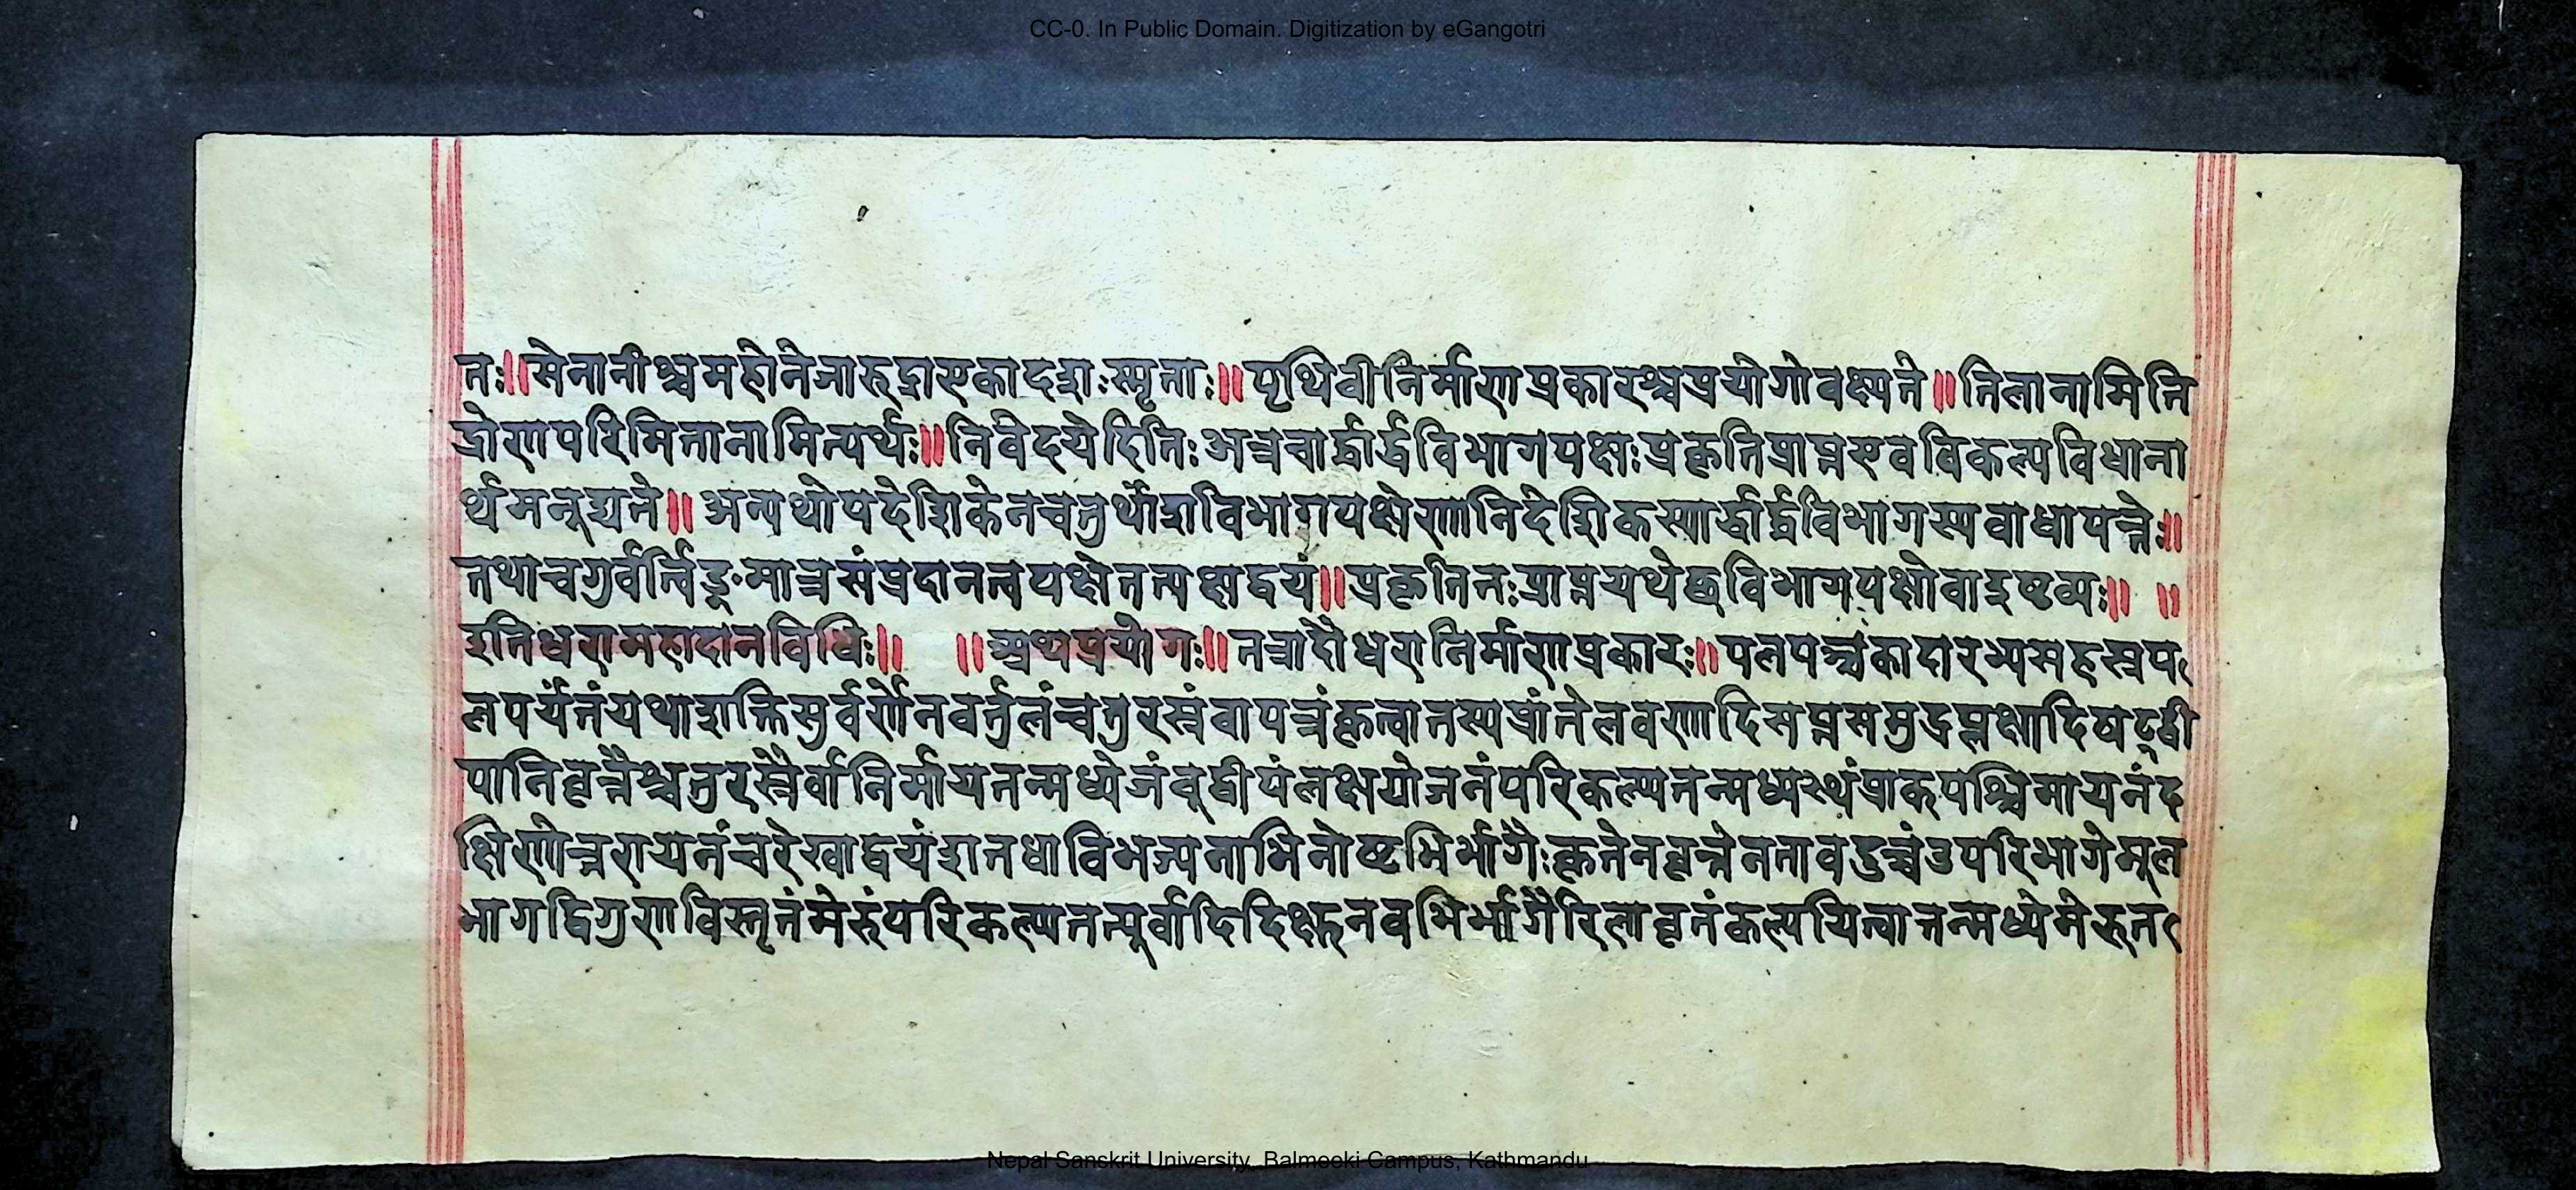 CC-0. In Public Domain. Digitization by eGangotri
तः॥सेनानीश्चमहातेजारुद्राएकादशःस्मृताः॥पृथिवीनिर्माणप्रकारश्चप्रयोगोवक्ष्यते॥तिलानामिति
द्रोणपरिमितानामित्यर्थः॥निवेदयेदितिःअत्रचार्द्धार्द्धविभागपक्षःप्रकृतिप्राप्तएवविकल्पविधाना
र्थमनूद्यते॥अन्यथोपदेशिकेनचतुर्थांशविभागपक्षेणातिदेशिकस्यार्द्धार्द्धविभागस्यवाधापत्तेः॥
तथाचगुर्वर्त्विङ्मात्रसंप्रदानत्वपक्षेतत्पक्षद्वयं॥प्रकृतितःप्राप्तयथेछविभागपक्षोवाद्रष्टव्यः॥ ॥
इतिधरामहादानविधिः॥ ॥अथप्रयोगः॥तत्रादौधरानिर्माणप्रकारः॥पलपञ्चकादारभ्यसहस्रप
लपर्यंतंयथाशक्तिसुर्वर्णेनवर्तुलंचतुरस्रंवापत्रंकृत्वातस्यप्रांतेलवणादिसप्तसमुद्रप्लक्षादिषट्द्वी
पानिवृत्तैश्चतुरस्रैर्वानिर्मायतन्मध्येजंवुद्वीपंलक्षयोजनंपरिकल्प्यतन्मध्यस्थंप्राक्पश्चिमायतंद
क्षिणोत्तरायतंचरेखाद्वयंशतधाविभज्यनाभितोष्टभिर्भागैःकृतेनवृत्तेनतावदुच्चंउपरिभागेमूल
भागद्विगुणविस्तृतंमेरुंपरिकल्प्यतत्पूर्वादिदिक्षुनवभिर्भागैरिलावृतंकल्पयित्वातन्मध्येमेरुत
Nepal Sanskrit University, Balmeeki Campus, Kathmandu